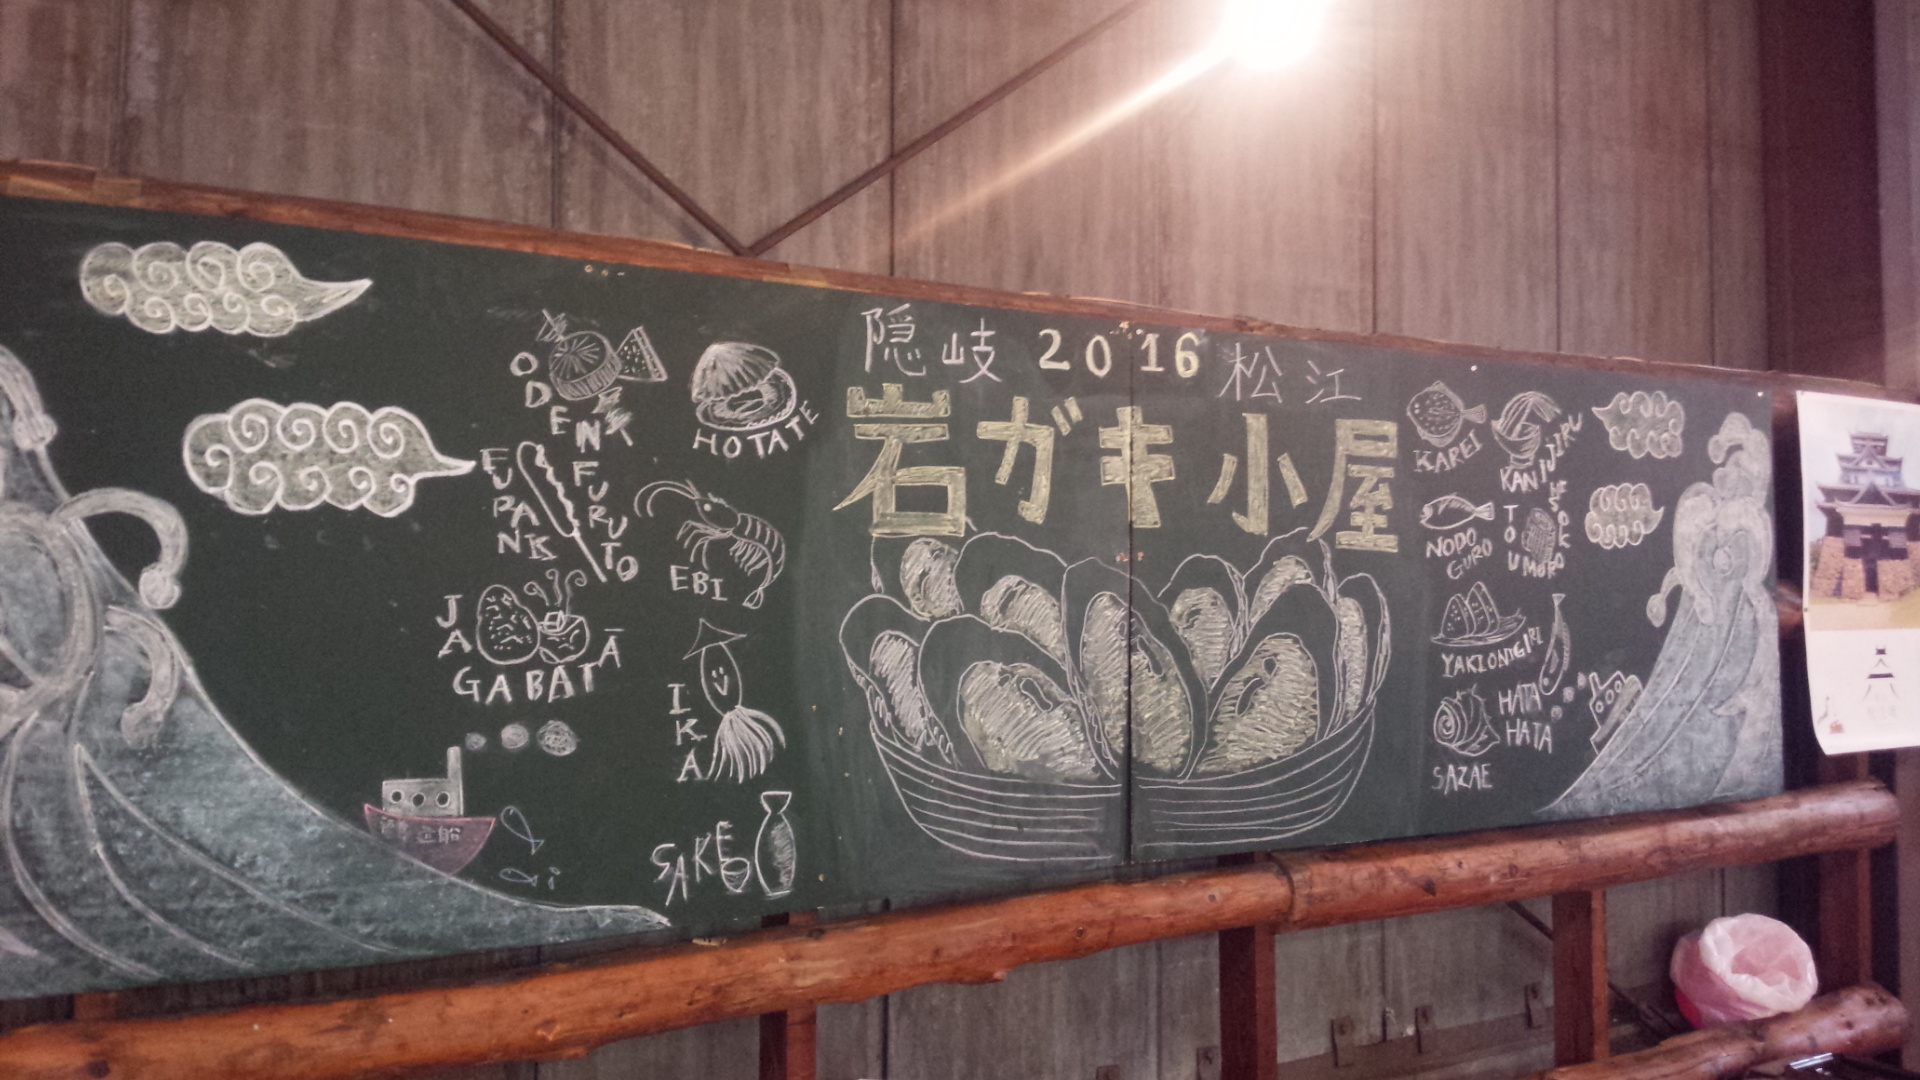 隠岐 2016 松江
岩ガキ小屋
ODEN
HOTATE
FURANK
FURUTO
EBI
JAGABATĀ
IKA
SAKE
KAREI
KANIJIRU
NODO
GURO
TOUMORO
YAKIONIGIRI
HATA
HATA
SAZAE